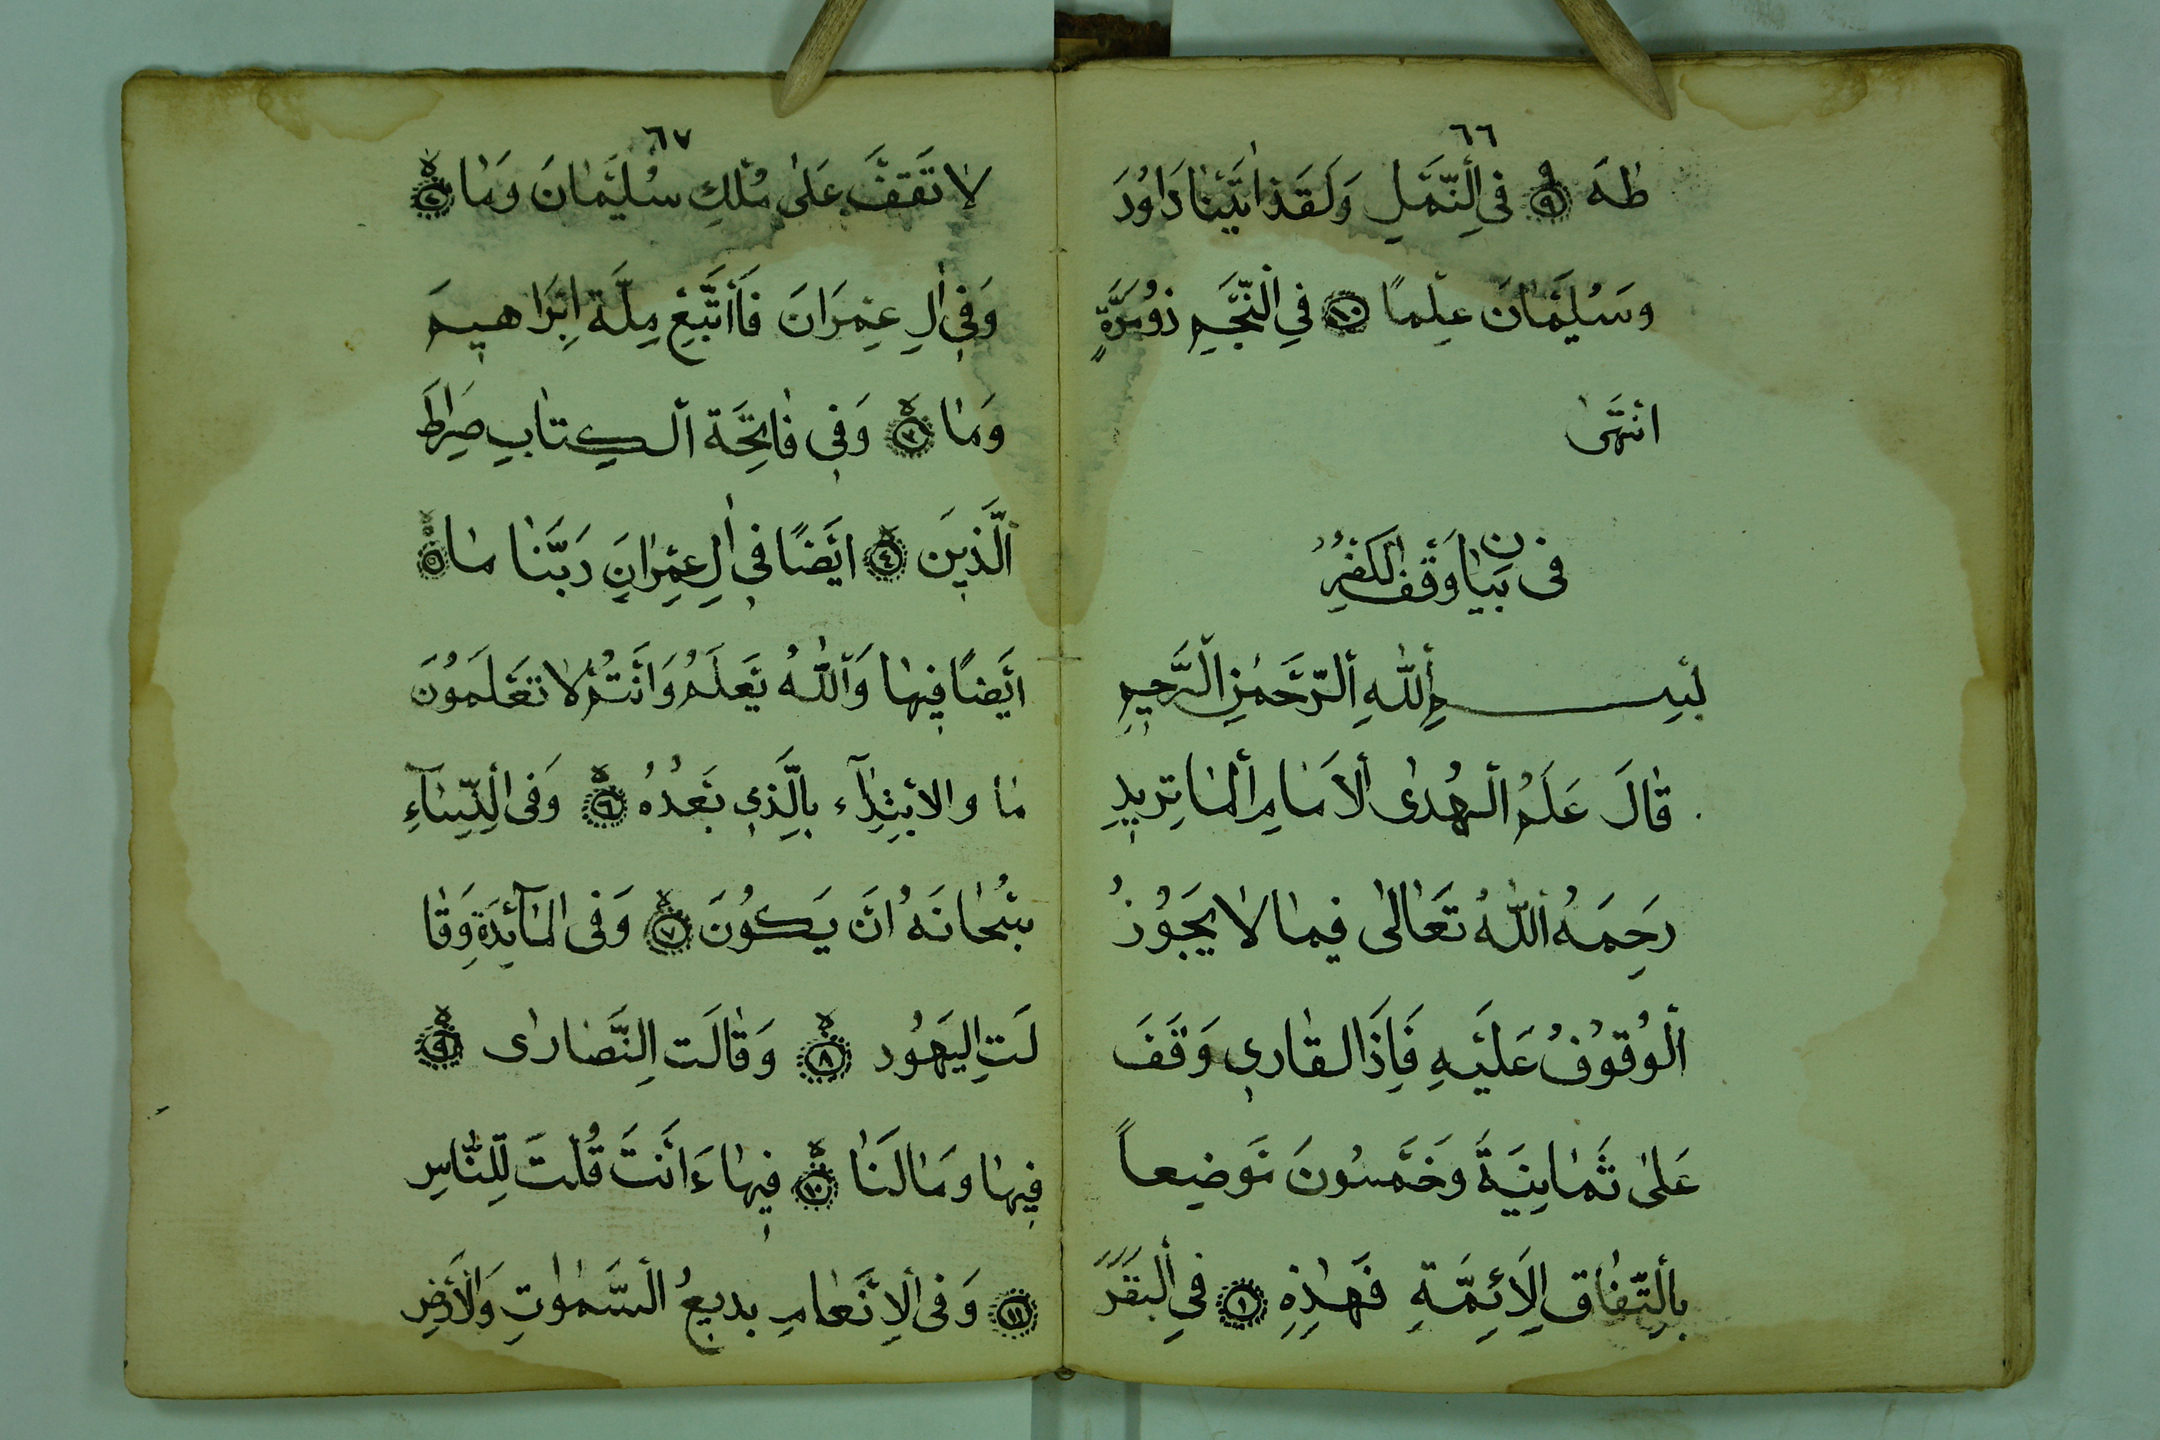 ٦٦
طٰهَ ٩ فِي النَّمْلِ وَلَقَدْ اٰتَيْنَا دَاوُدَ
وَسُلَيْمَانَ عِلْمًا ١٠ فِي النَّجْمِ ذُو مِرَّةٍ
انْتَهَى
فى بَيَانِ وَقْفِ الكُفْرِ
بِسْمِ اللّٰهِ الرَّحْمٰنِ الرَّحِيمِ
قَالَ عَلَمُ الْهُدٰى اَلاَمَامِ الْمَاتِرِيدِ
رَحِمَهُ اللّٰهُ تَعَالٰى فِيمَا لَا يَجُوزُ
اَلْوُقُوفُ عَلَيْهِ فَاِذَا لقَارِي وَقَفَ
عَلٰى ثَمَانِيَةَ وَخَمْسُونَ مَوْضِعاً
بِالتِّفَاقِ الَائِمَّةِ فَهٰذِهِ ١ فِي الْبَقَرَ
٦٧
لَا تَقِفْ عَلٰى مُلْكِ سُلَيْمَانَ وَمَا ٢
وَفِي اٰلِ عِمْرَانَ فَاَاتَّبِعْ مِلَّةَ اِبْرَاهِيمَ
وَمَا ٣ وَفِي فَاتِحَةَ الْكِتَابِ صِرَاطَ
الَّذِينَ ٤ اَيْضًا فِي اٰلِ عِمْرَانِ رَبَّنَا مَا ٥
اَيْضًا فِيهَا وَاللّٰهُ يَعْلَمُ وَاَنْتُمْ لَا تَعْلَمُونَ
مَا والابْتِدَآء بِالَّذِي بَعْدُهُ ٦ وَفِى النِّسَآءِ
سُبْحَانَهُ اَنْ يَكُونَ ٧ وَفِى الْمَآئِدَةِ وَقَا
لَتِ اليَهُود ٨ وَقَالَت النَّصَارٰى ٩
فِيهَا وَمَا لَنَا ١٠ فِيهَا ءَاَنْتَ قُلْتَ لِلنَّاسِ
١١ وَفِى الْاَنْعَامِ بَدِيعُ السَّمٰوٰتِ وَالْاَرْضِ